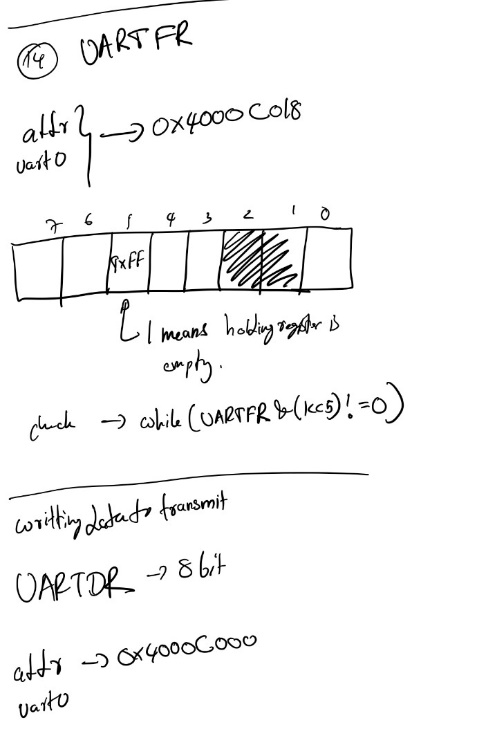 14 UARTFR
addr
uart0 → 0x4000C018
7 6 5 4 3 2 1 0
TxFF
1 means holding register is
empty.
check → while(UARTFR & (1<<5)!=0)
writting data to transmit
UARTDR → 8 bit
addr → 0x4000C000
uart0